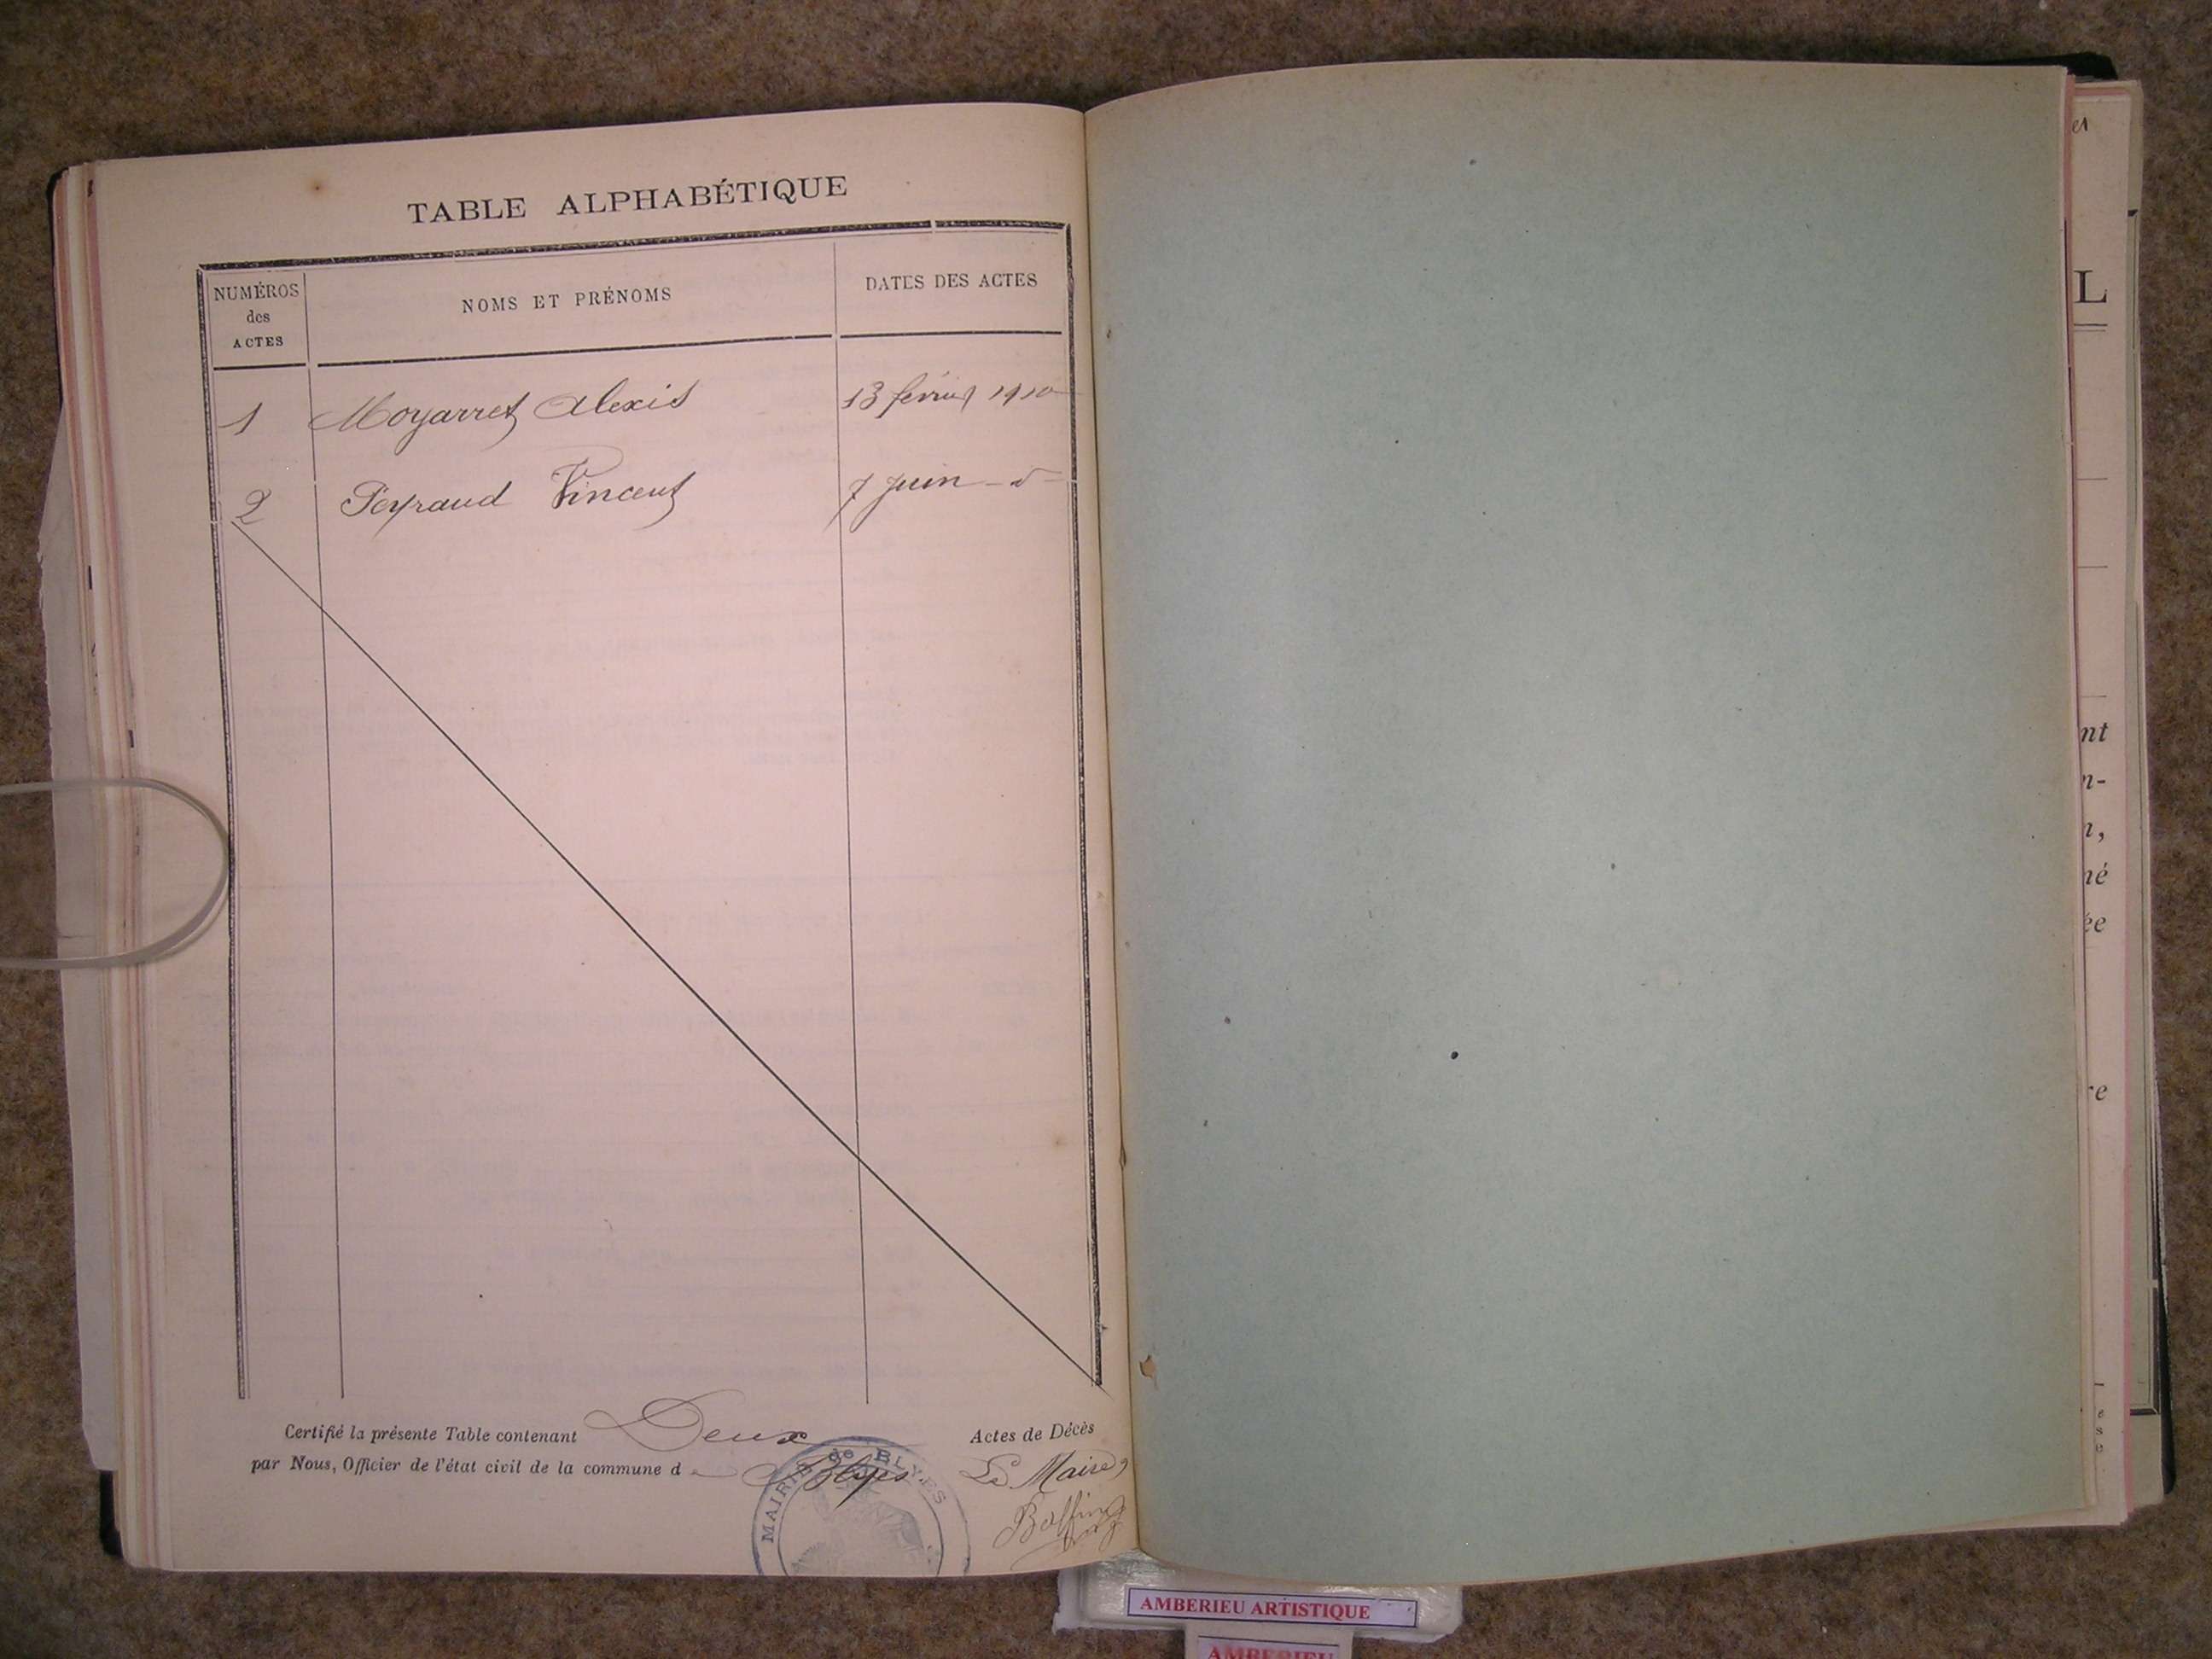 TABLE ALPHABÉTIQUE
NUMÉROS
des
ACTES
NOMS ET PRÉNOMS
DATES DES ACTES
1 Moyarret Alexis 13 février 1910
2 Peyraud Vincent 7 Juin - d° -
Certifié la présente Table contenant Deux Actes de Décès
par Nous, Officier de l'état civil de la commune de Blyes Le Maire,
MAIRIE de BLYES
AMBERIEU ARTISTIQUE
AMBERIEU
L
nt
n-
n,
né
ée
re